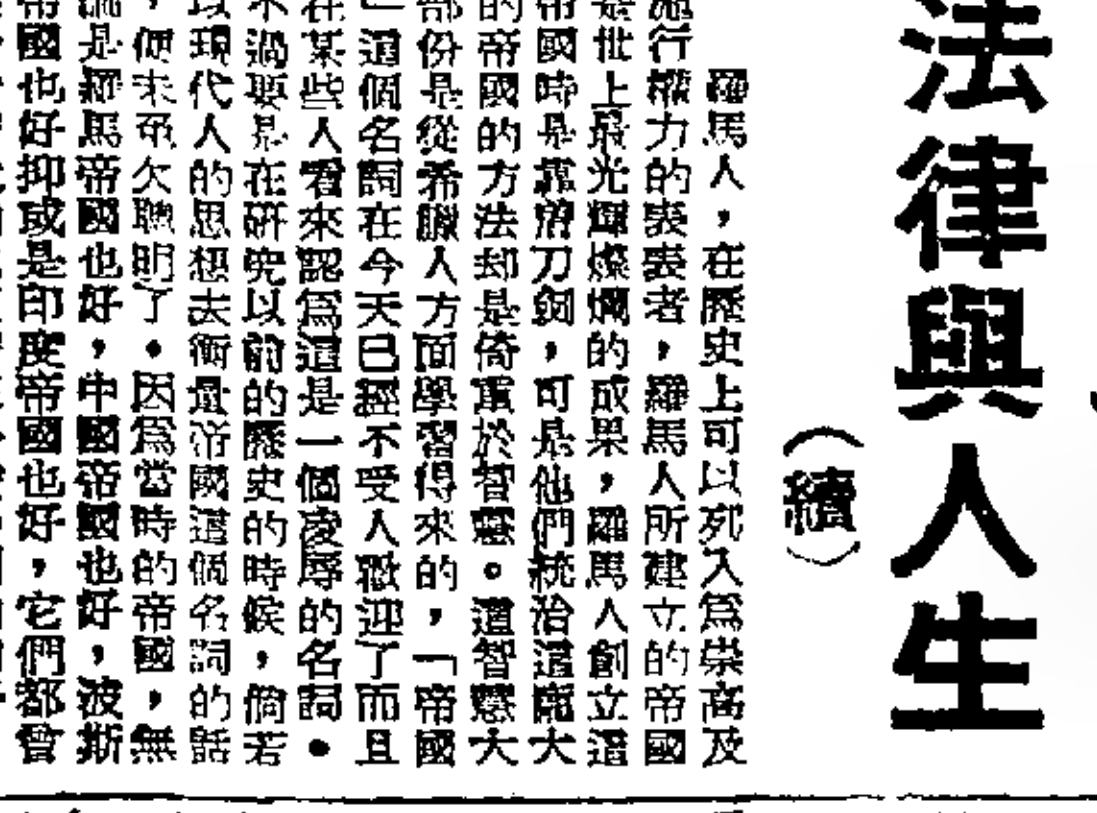 法律與人生
（續）
羅馬人，在歷史上可以列入爲崇高及
施行權力的表表者，羅馬人所建立的帝國
是世上最光輝燦爛的成果，羅馬人創立這
帝國時是靠着刀劍，可是他們統治這龐大
的帝國的方法却是倚重於智慧。這智慧大
部份是從希臘人方面學習得來的，「帝國
」這個名詞在今天已經不受人歡迎了而且
在某些人看來認爲這是一個凌辱的名詞。
不過要是在研究以前的歷史的時候，倘若
以現代人的思想去衡量帝國這個名詞的話
，便未免欠聰明了。因爲當時的帝國，無
論是羅馬帝國也好，中國帝國也好，波斯
帝國也好抑或是印度帝國也好，它們都曾